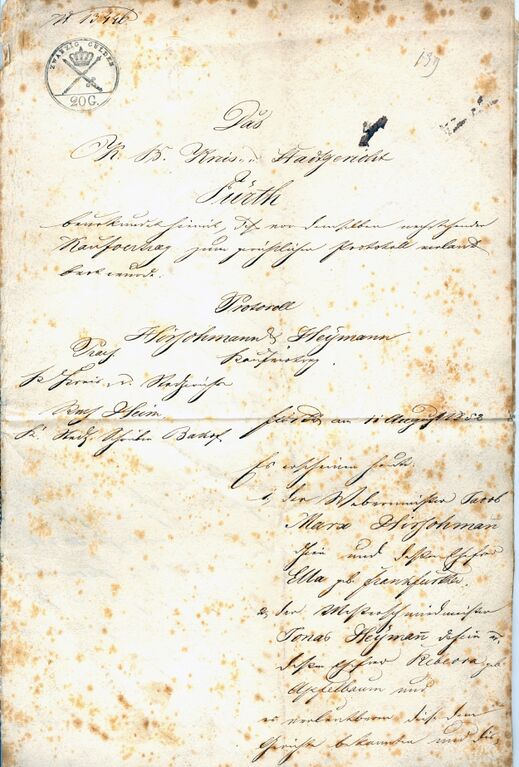 No 13446
139
ZWANZIG GULDEN
20 G.
Das
K. B. Kreis- u. Stadtgericht
Fürth
beurkundet hiemit, daß vor demselben nachstehender
Kaufvertrag zum gerichtlichen Protokoll verlaut
bart wurde.
Protocoll
Hirschmann & Heÿmann
Kaufvertrag
K. Kreis- u. Stadtgericht
Fürth am 11 August 1858
Es erscheinen heute:
1, der Webermeister Jacob
Marx Hirschman
und dessen Ehefrau
Ella geb. Frankfurter
2, der Messerschmiedmeister
Jonas Heÿman̄ dahier u.
dessen Ehefrau Rebecca geb.
Apfelbaum und
es verlautbaren diese dem
Gerichte bekannten und